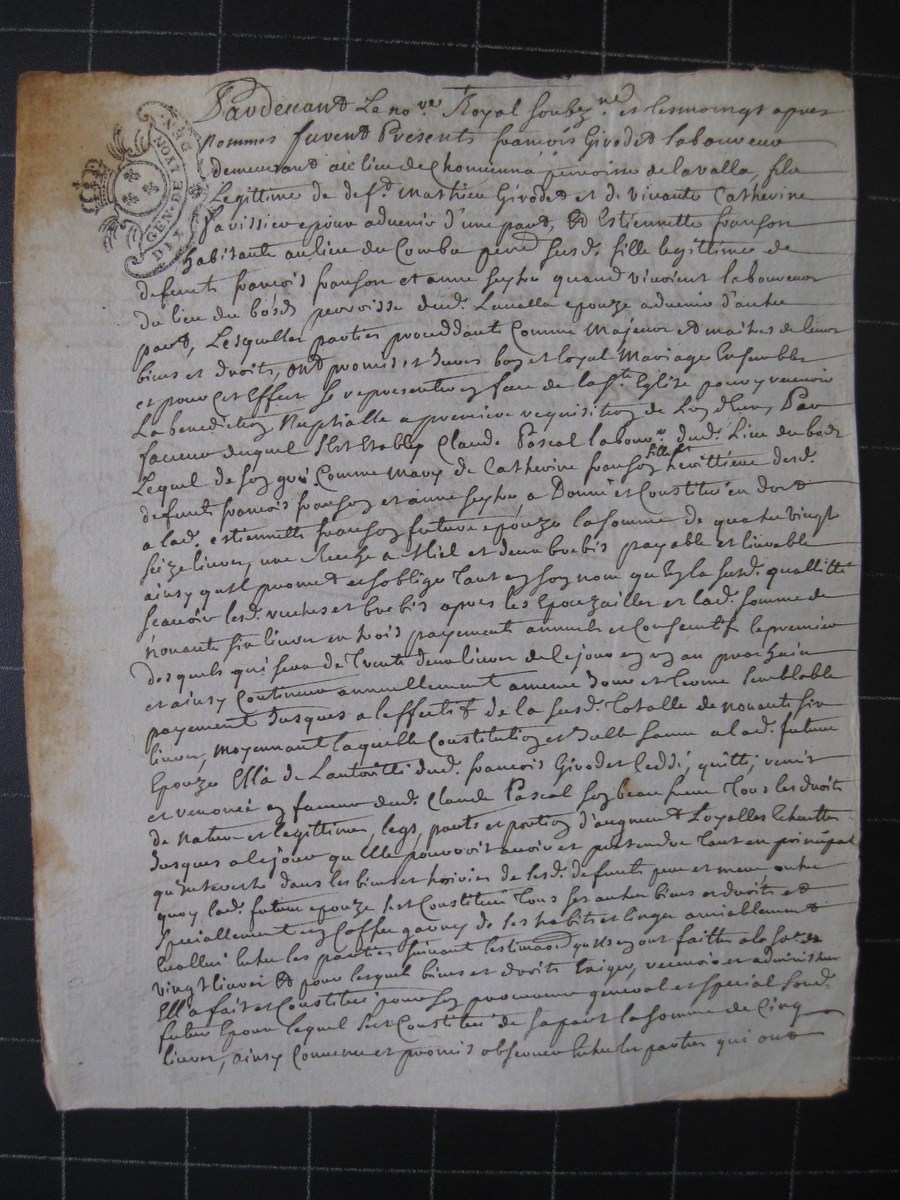 GEN. DE LYON
DEN.
Pardevant Le no.re Royal soubz.né et les moings apres
nommes furent Presents françois Girodet laboureur
demeurant au lieu de Chomienna parroisse de lavalla, fils
Legittime de def.t Mathieu Girodet et de vivante Catherine
epoux advenir d'une part, Et Estiennette franson
habitante au lieu du Comba susd. fille legittime de
defunts francois franson et anne seytre quand vivoient laboureur
du lieu du bosd parroisse dud. Lavalla epouze advenir d'autre
part, Lesquelles parties proceddant Comme Majeurs et maitres de leurs
biens et droits, ont promis et Jurés bon et loyal Mariage Ensembles
et pour cet Effect se representer en face de la s.te Eglise pour y recevoir
La benediction Nuptialle a premiere requisition de L'un d'Eux, Par
faveur duquel s'Est Etably Claude Pascal labour.r dud. Lieu du bosd
Lequel de son gré Comme Mary de Catherine franson fille et herittiere desd.
defunts francois franson et anne seytre a Donné et Constitué en dot
a lad. estiennette franson future epouze la somme de quatre vingt
seize livres, une Ruche a Miel et deux brebis payable et livrable
ainsy qu'il promet et s'oblige Tant en son nom qu'En la susd. quallitté
scavoir les d. ruches et brebis apres les Epouzailles et lad. somme de
nonante six livres en trois payements annuels et Consecutifs le premier
desquels qui sera de Trente deux livres de Ce jour en un an prochain
et ainsy Continuer annuellement a meme Jour et Terme semblable
payement Jusques a l'effectif de la susd. totalle de nonante six
livres, Moyennant laquelle Constitution et Icelle somme a lad. future
Epouze Ella de L'autoritté dud. francois Girodet Ceddé, quitté, remis
et renoncé en faveur dud. Claude Pascal son beau frere Tous les droits
de Nature et legittimes, legs, parts et portion d'augment Loyalles Echeuttes
Jusques a Ce jour qu'Elle pouvoit avoir et pretendre Tant en principal
qu'Interets dans les biens et hoiries de sesd. defunts pere et mere outre
quoy lad. future epouze s'est Constitué Tous ses autres biens et droits et
speciallement un Coffre garny de ses habits et linges amiablement
Evallué Entre les parties suivant l'estimaōn qu'Ils en ont faitte a la so.e de
vingt livres Et pour lesquels biens et droits Exiger, recevoir et administrer
Elle a fait et Constitué pour son procureur general et special sond.
futur Epoux lequel s'est Constitué de sa part la somme de Cinq
livres, ainsy Convenu et promis observer Entre les parties qui ont